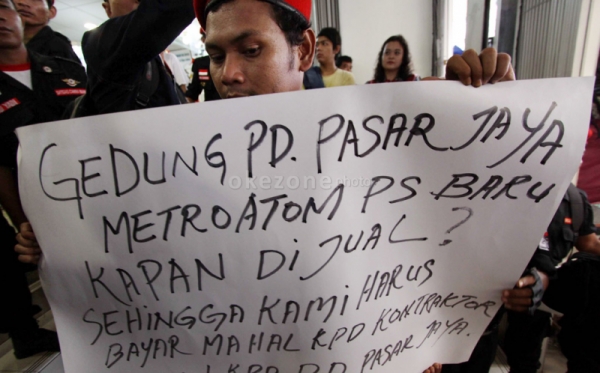 GEDUNG PD. PASAR JAYA
METROATOM PS BARU
KAPAN DI JUAL?
SEHINGGA KAMI HARUS
BAYAR MAHAL KPD KONTRAKTOR
KPD P.D PASAR JAYA.
okezone photo